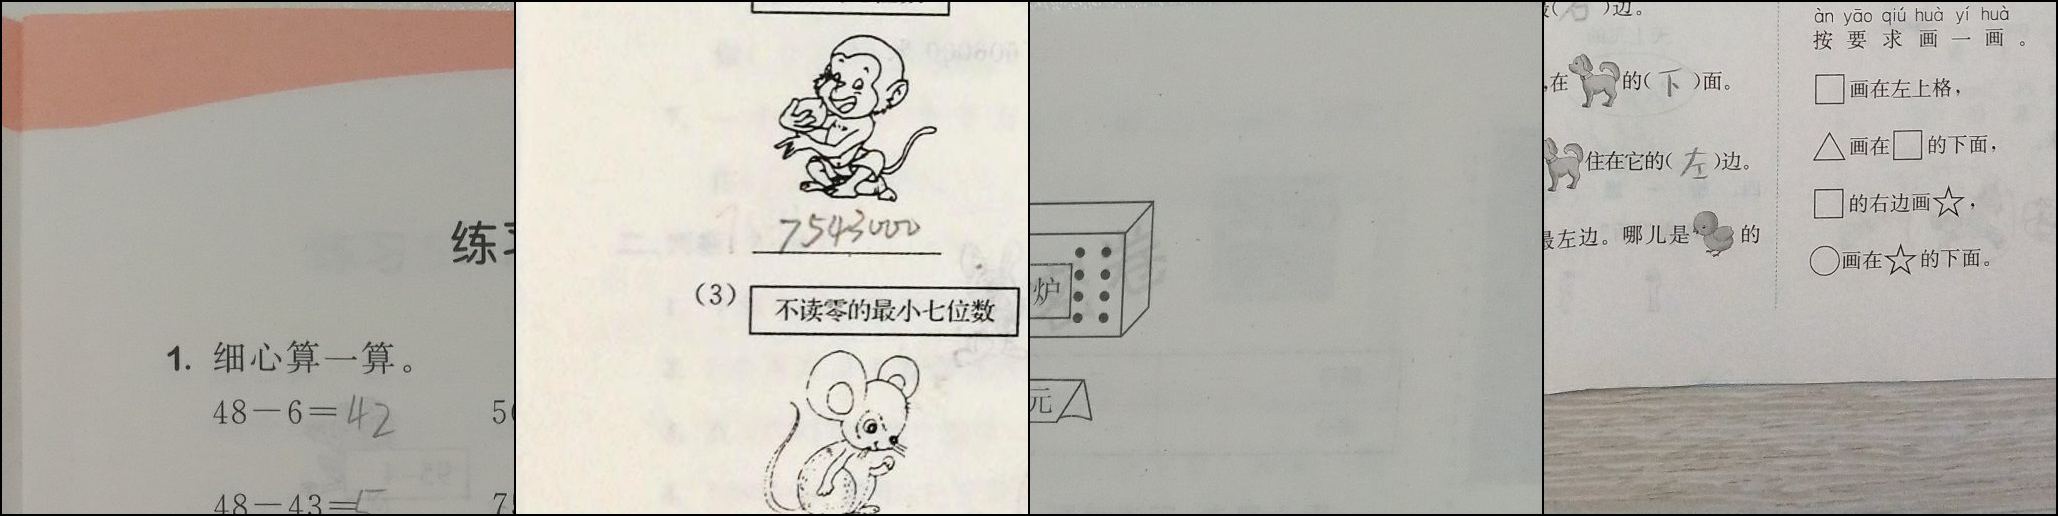 练习
1. 细心算一算。
48－6＝42
48－43＝5
7543000
（3） 不读零的最小七位数
炉
元
)边。
,在 的( 下 )面。
住在它的( 左 )边。
最左边。哪儿是 的
àn yāo qiú huà yí huà
按要求画一画。
□画在左上格，
△画在□的下面，
□的右边画☆，
○画在☆的下面。